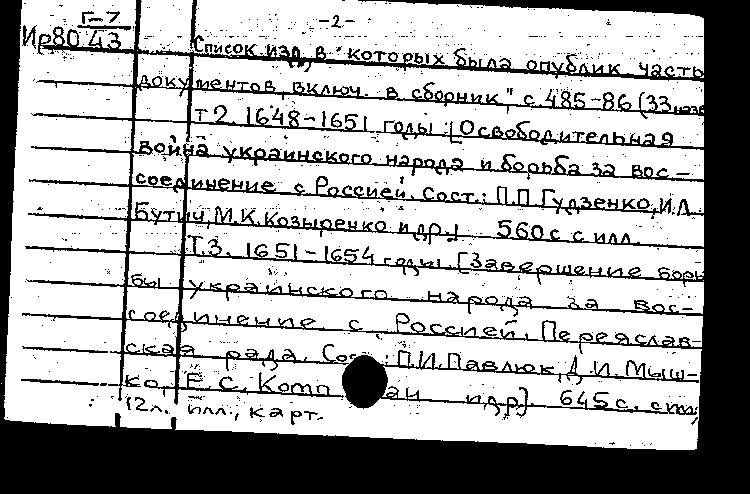 Г-7 -2-
Ир80 43 Список изд, в которых была опублик часть
документов, включ. в сборник", с. 485-86 (33 назв
Т 2. 1648-1651 годы. [Освободительная
война украинского народа и борьба за вос-
соединение с Россией. Сост.: П.П Гудзенко, И.Л.
Бутич, М.К. Козыренко и др.] 560 с с илл.
Т.3. 1651-1654 годы. [Завершение борь
бы украинского народа за вос-
соединение с Россией. Переяслав-
ская рада. П.И. Павлюк, Д.И. Мыш-
ко, Е С. и др]. 645 с.
12л. илл., карт.